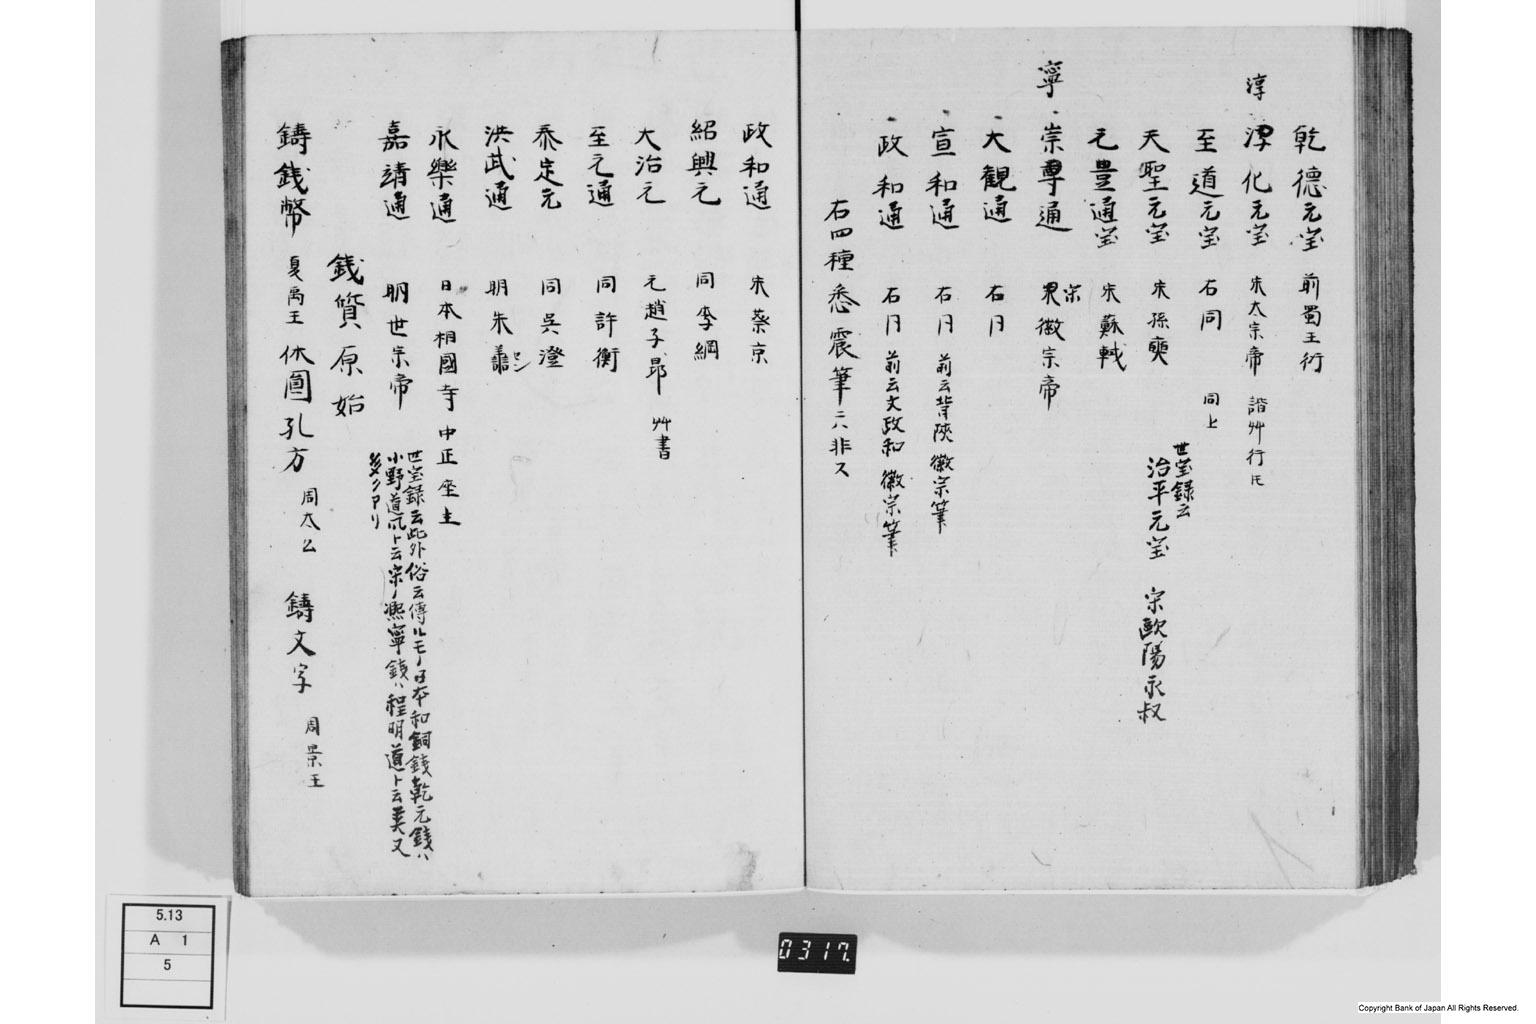 乾德元宝 前蜀王衍
淳
淳化元宝 宋太宗帝 諧艸行モ
至道元宝 右同 同上
世宝録云
治平元宝 宋歐陽永叔
天聖元宝 宋孫奭
元豊通宝 宋蘇軾
寧
崇尊通 宋徽宗帝
大觀通 右同
宣和通 右同 前云背陝 徽宗筆
政和通 右同 前云文政和 徽宗筆
右四種悉震筆ニハ非ス
政和通 宋蔡京
紹興元 同李綱
大治元 元趙子昂 艸書
至元通 同許衡
泰定元 同吳澄
洪武通 明朱
永樂通 日本相國寺中正座主
世宝録云此外俗云傳ルモノ日本和銅錢乾元錢ハ
小野道風ト云宋ノ熈寧錢ハ程明道ト云異又
多シアリ
嘉靖通 明世宗帝
錢質原始
鑄錢幣 夏禹王 体圓孔方 周太公 鑄文字 周景王
5.13
A 1
5
0317.
Copyright Bank of Japan All Rights Reserved.